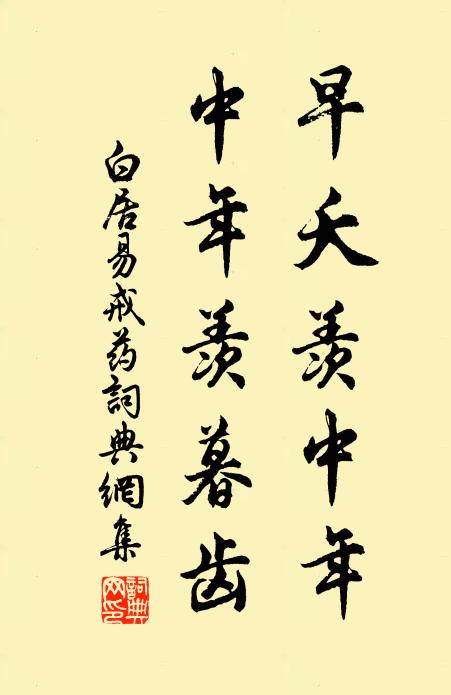 早夭羡中年
中年羡暮齿
白居易戒药詞典網集
詞典
网印